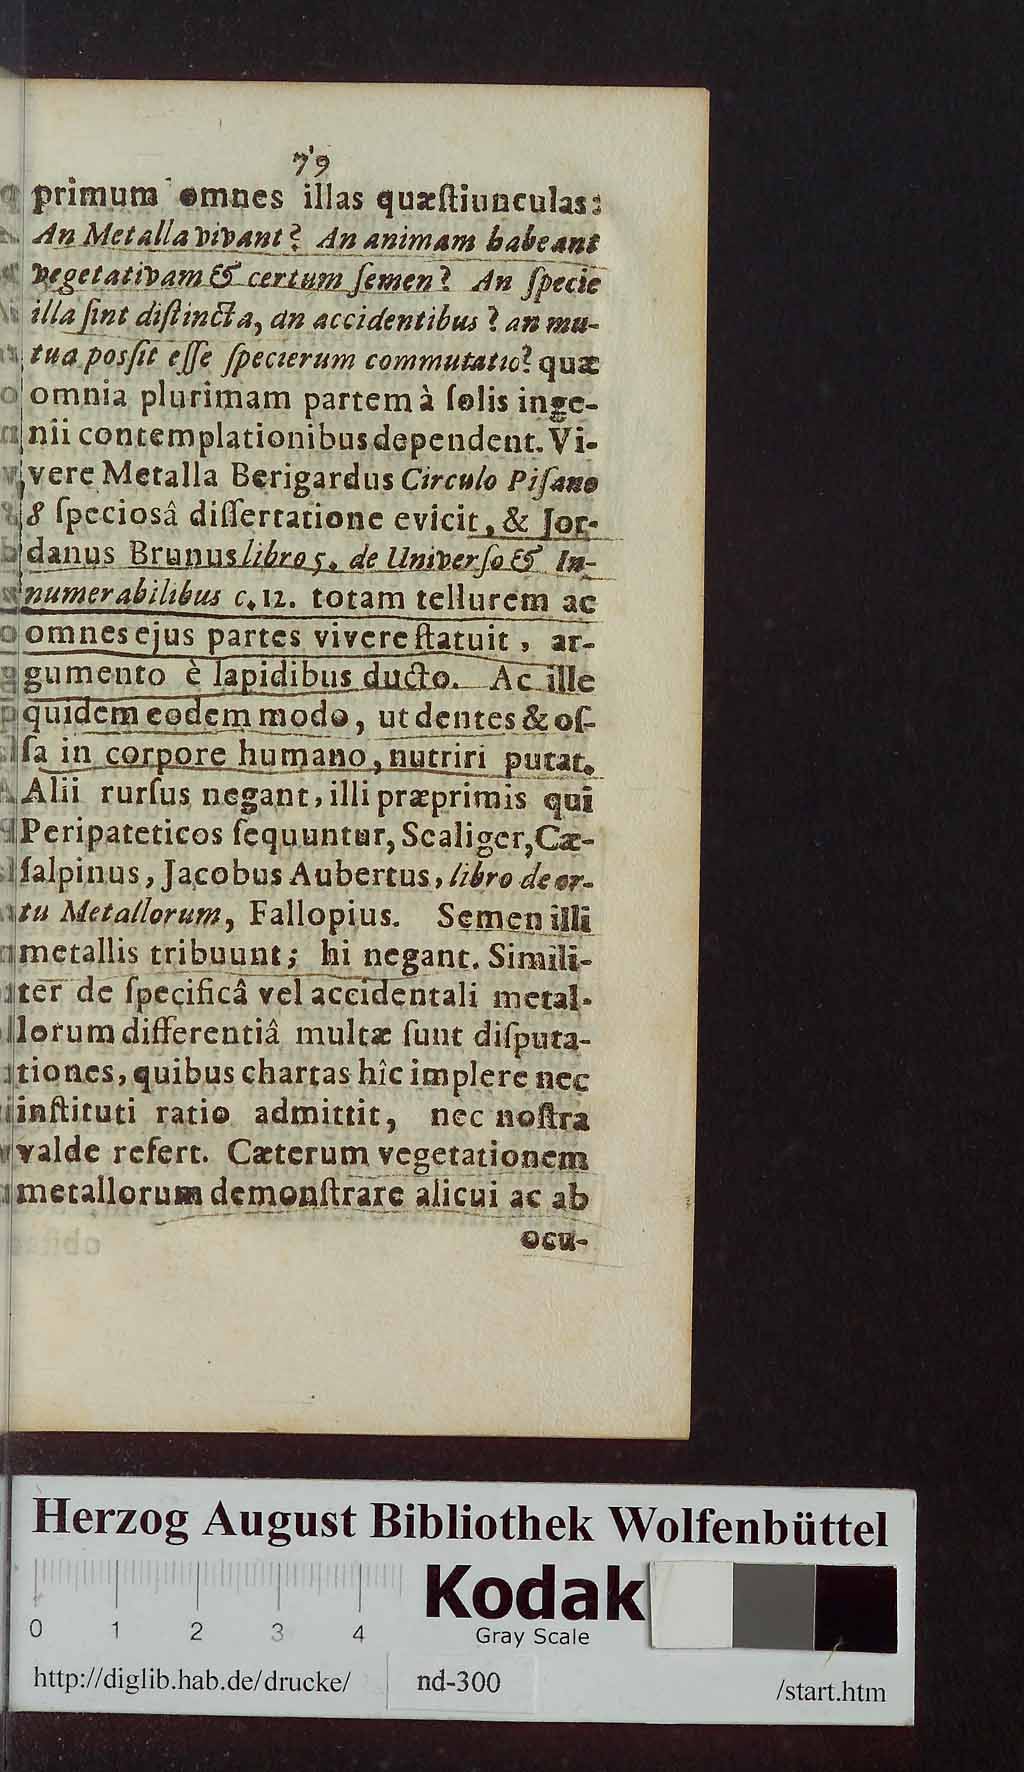 79
primum omnes illas quæſtiunculas:
An Metalla vivant? An animam habeant
vegetativam & certum ſemen? An ſpecie
illa ſint diſtincta, an accidentibus? an mu-
tua posſit eſſe ſpecierum commutatio? quæ
omnia plurimam partem à ſolis inge-
nii contemplationibus dependent. Vi-
vere Metalla Berigardus Circulo Piſano
8 ſpeciosâ diſſertatione evicit, & Jor-
danus Brunus libro 5. de Univerſo & In-
numerabilibus c. 12. totam tellurem ac
omnes ejus partes vivere ſtatuit, ar-
gumento è lapidibus ducto. Ac ille
quidem eodem modo, ut dentes & oſ-
ſa in corpore humano, nutriri putat.
Alii rurſus negant, illi præprimis qui
Peripateticos ſequuntur, Scaliger, Cæ-
ſalpinus, Jacobus Aubertus, libro de or-
tu Metallorum, Fallopius. Semen illi
metallis tribuunt; hi negant. Simili-
ter de ſpecificâ vel accidentali metal-
lorum differentiâ multæ ſunt diſputa-
tiones, quibus chartas hîc implere nec
inſtituti ratio admittit, nec noſtra
valde refert. Cæterum vegetationem
metallorum demonſtrare alicui ac ab
ocu-
Herzog August Bibliothek Wolfenbüttel
Kodak
Gray Scale
0 1 2 3 4
http://diglib.hab.de/drucke/ nd-300 /start.htm